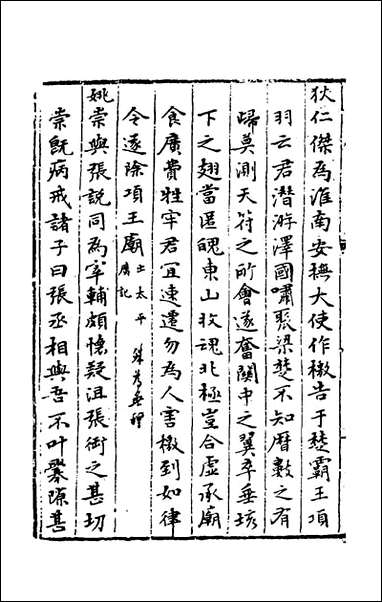 狄仁傑為淮南安撫大使作檄告于楚霸王項
羽云君潛游澤國嘯聚梁楚不知曆數之有
歸莫測天符之所會遂奮關中之翼卒垂垓
下之翅當匿魄東山收魂北極豈合虛承廟
食廣費牲牢君宜速遷勿為人害檄到如律
令遂除項王廟 太平廣記
姚崇與張說同為宰輔頗懷疑沮張銜之甚切
崇旣病戒諸子曰張丞相與吾不叶釁隙甚